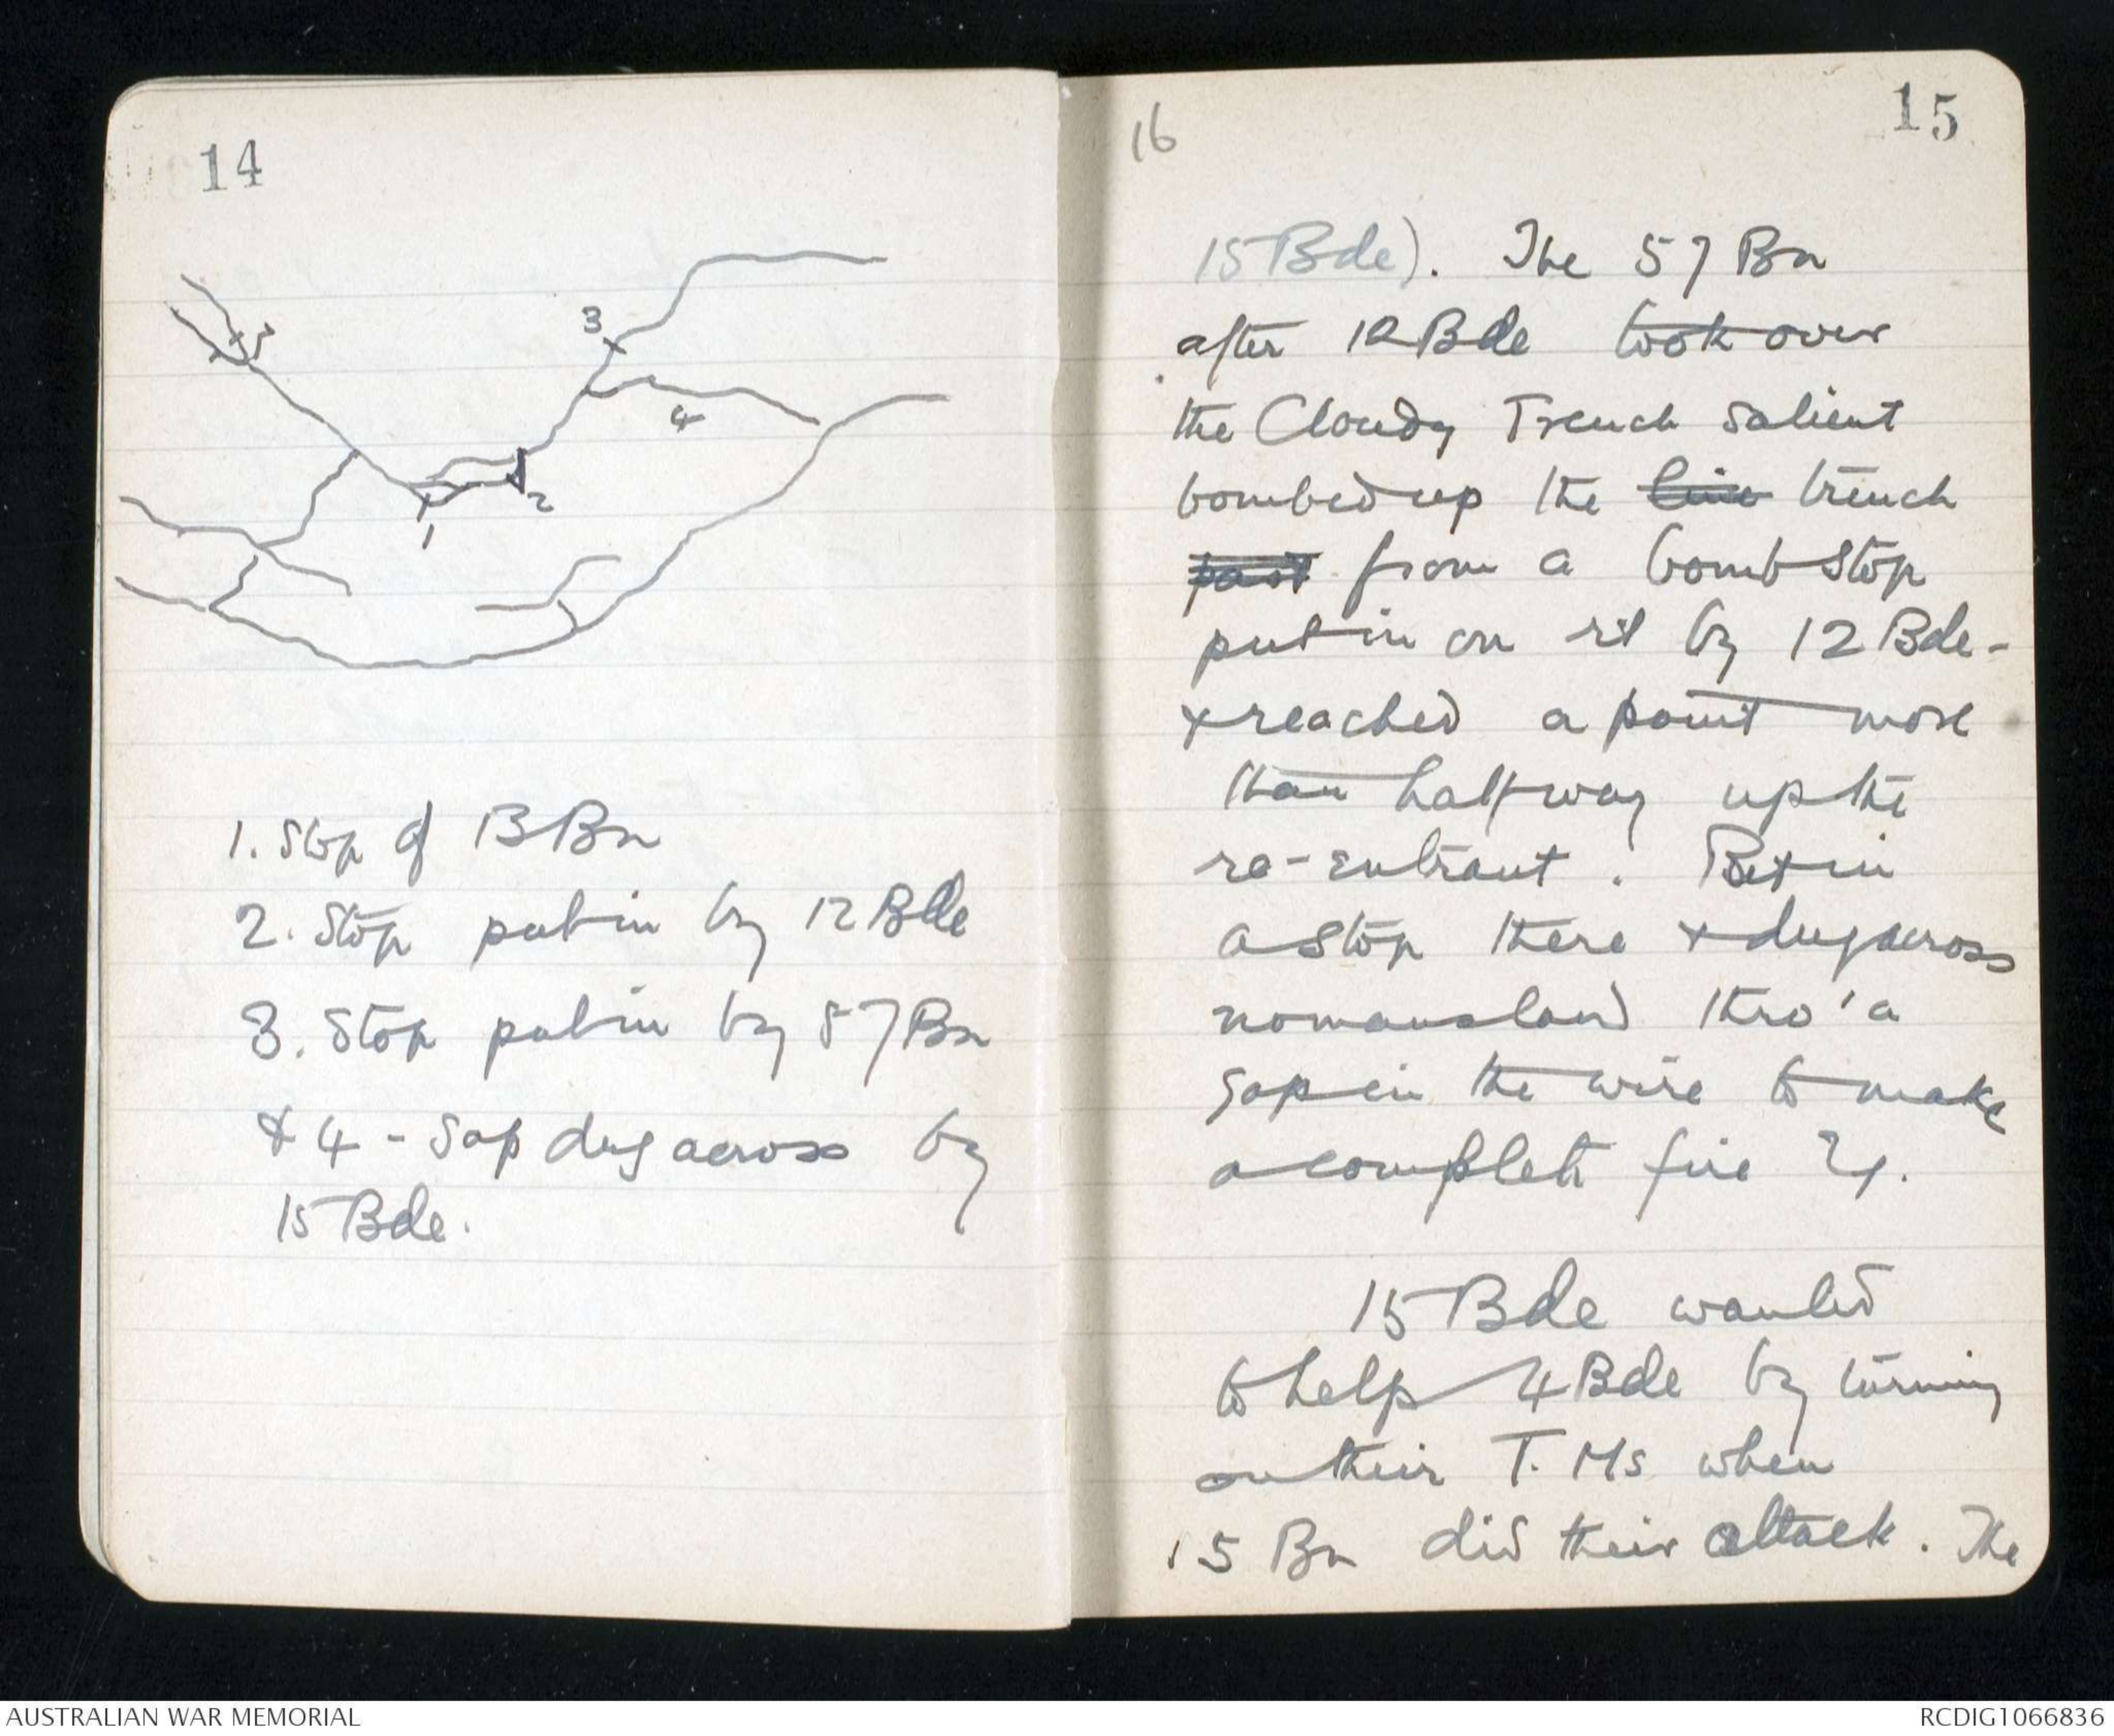 14
3
4
2
1
1. Stop of 13 Bn
2. Stop put in by 12 Bde
3. Stop put in by 57 Bn
& 4 - Sap dug across by
15 Bde.
16
15
15 Bde). The 57 Bn
after 12 Bde took over
the Cloudy Trench salient
bombed up the line trench
past from a bomb stop
put in on it by 12 Bde -
& reached a point more
than halfway up the
re-entrant. Put in
a stop there & dug across
nomansland thro' a
gap in the wire to make
a complete fire
15 Bde wanted
to help 4 Bde by turning
on their T.Ms when
15 Bn did their attack. The
AUSTRALIAN WAR MEMORIAL
RCDIG1066836